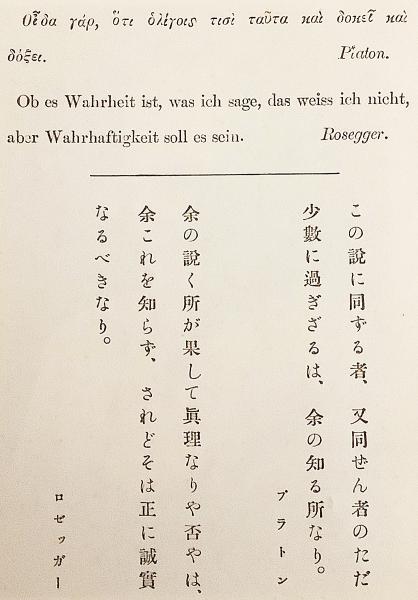 Οἶδα γάρ, ὅτι ὀλίγοις τισὶ ταῦτα καὶ δοκεῖ καὶ
δόξει. Piaton.
Ob es Wahrheit ist, was ich sage, das weiss ich nicht,
aber Wahrhaftigkeit soll es sein. Rosegger.
この説に同ずる者、又同ぜん者のただ
少數に過ぎざるは、余の知る所なり。
プラトン
余の説く所が果して眞理なりや否やは、
余これを知らず、されどそは正に誠實
なるべきなり。
ロゼッガー